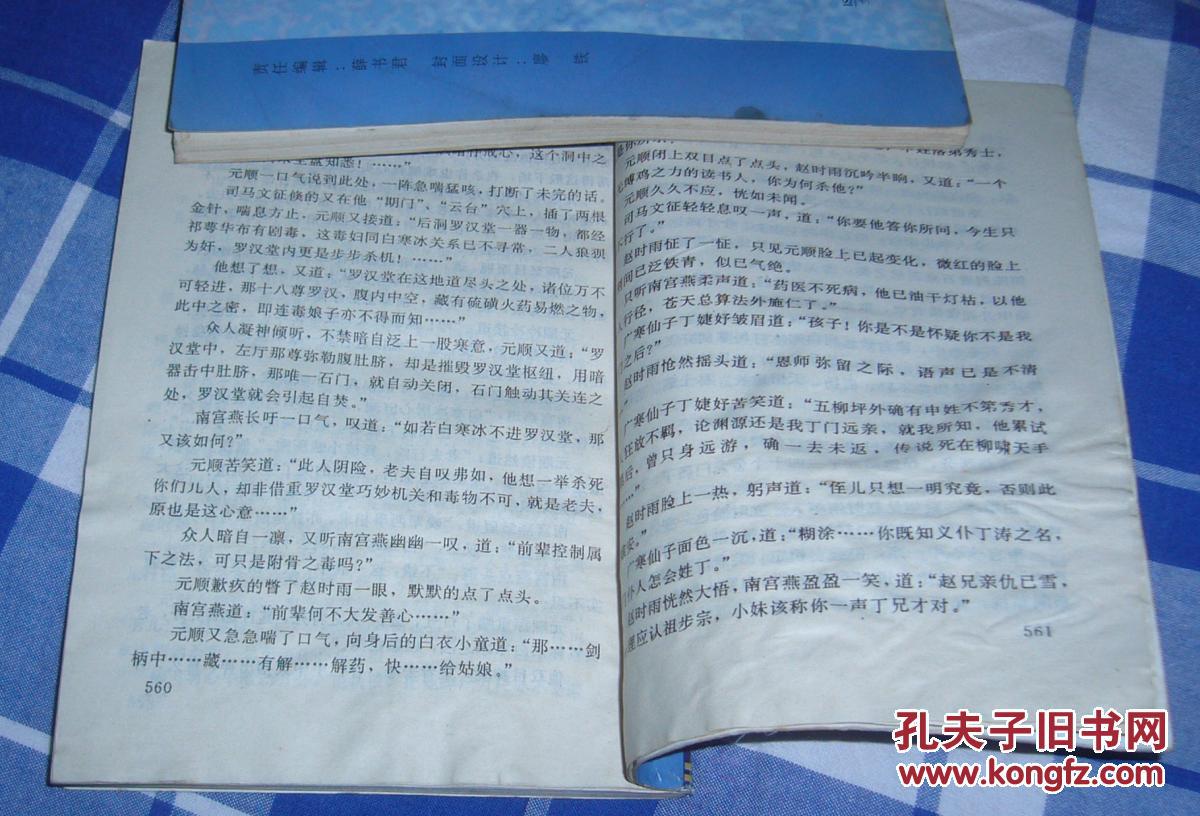 责任编辑：薛书君 封面设计：廖 铁
戒心，这个洞中之
元顺一口气说到此处，一阵急喘猛咳，打断了未完的话。
司马文征倏的又在他“期门”、“云台”穴上，插了两根
金针，喘息方止，元顺又接道：“后洞罗汉堂一器一物，都经
祁尊华布有剧毒，这毒妇同白寒冰关系已不寻常，二人狼狈
为奸，罗汉堂内更是步步杀机！……”
他想了想，又道：“罗汉堂在这地道尽头之处，诸位万不
可轻进，那十八尊罗汉，腹内中空，藏有硫磺火药易燃之物，
此中之密，即连毒娘子亦不得而知……”
众人凝神倾听，不禁暗自泛上一股寒意，元顺又道：“罗
汉堂中，左厅那尊弥勒腹肚脐，却是摧毁罗汉堂枢纽，用暗
器击中肚脐，那唯一石门，就自动关闭，石门触动其关连之
处，罗汉堂就会引起自焚。”
南宫燕长吁一口气，叹道：“如若白寒冰不进罗汉堂，那
又该如何？”
元顺苦笑道：“此人阴险，老夫自叹弗如，他想一举杀死
你们儿人，却非借重罗汉堂巧妙机关和毒物不可，就是老夫，
原也是这心意……”
众人暗自一凛，又听南宫燕幽幽一叹，道：“前辈控制属
下之法，可只是附骨之毒吗？”
元顺歉疚的瞥了赵时雨一眼，默默的点了点头。
南宫燕道：“前辈何不大发善心……”
元顺又急急喘了口气，向身后的白衣小童道：“那……剑
柄中……藏……有解……解药，快……给姑娘。”
560
落第秀士，
元顺闭上双目点了点头，赵时雨沉吟半晌，又道：“一个
缚鸡之力的读书人，你为何杀他？”
元顺久久不应，恍如未闻。
司马文征轻轻息叹一声，道：“你要他答你所问，今生只
不行了。”
赵时雨怔了一怔，只见元顺脸上已起变化，微红的脸上
间已泛铁青，似已气绝。
只听南宫燕柔声道：“药医不死病，他已油干灯枯，以他
人行径，苍天总算法外施仁了。”
广寒仙子丁婕妤皱眉道：“孩子！你是不是怀疑你不是我
之后？”
赵时雨怆然摇头道：“恩师弥留之际，语声已是不清
广寒仙子丁婕妤苦笑道：“五柳坪外确有申姓不第秀才，
狂放不羁，论渊源还是我丁门远亲，就我所知，他累试
后，曾只身远游，确一去未返，传说死在柳啸天手
……”
赵时雨脸上一热，躬声道：“侄儿只想一明究竟，否则此
安。”
广寒仙子面色一沉，道：“糊涂……你既知义仆丁涛之名，
仆人怎会姓丁。”
赵时雨恍然大悟，南宫燕盈盈一笑，道：“赵兄亲仇已雪，
应认祖步宗，小妹该称你一声丁兄才对。”
561
孔夫子旧书网
www.kongfz.com